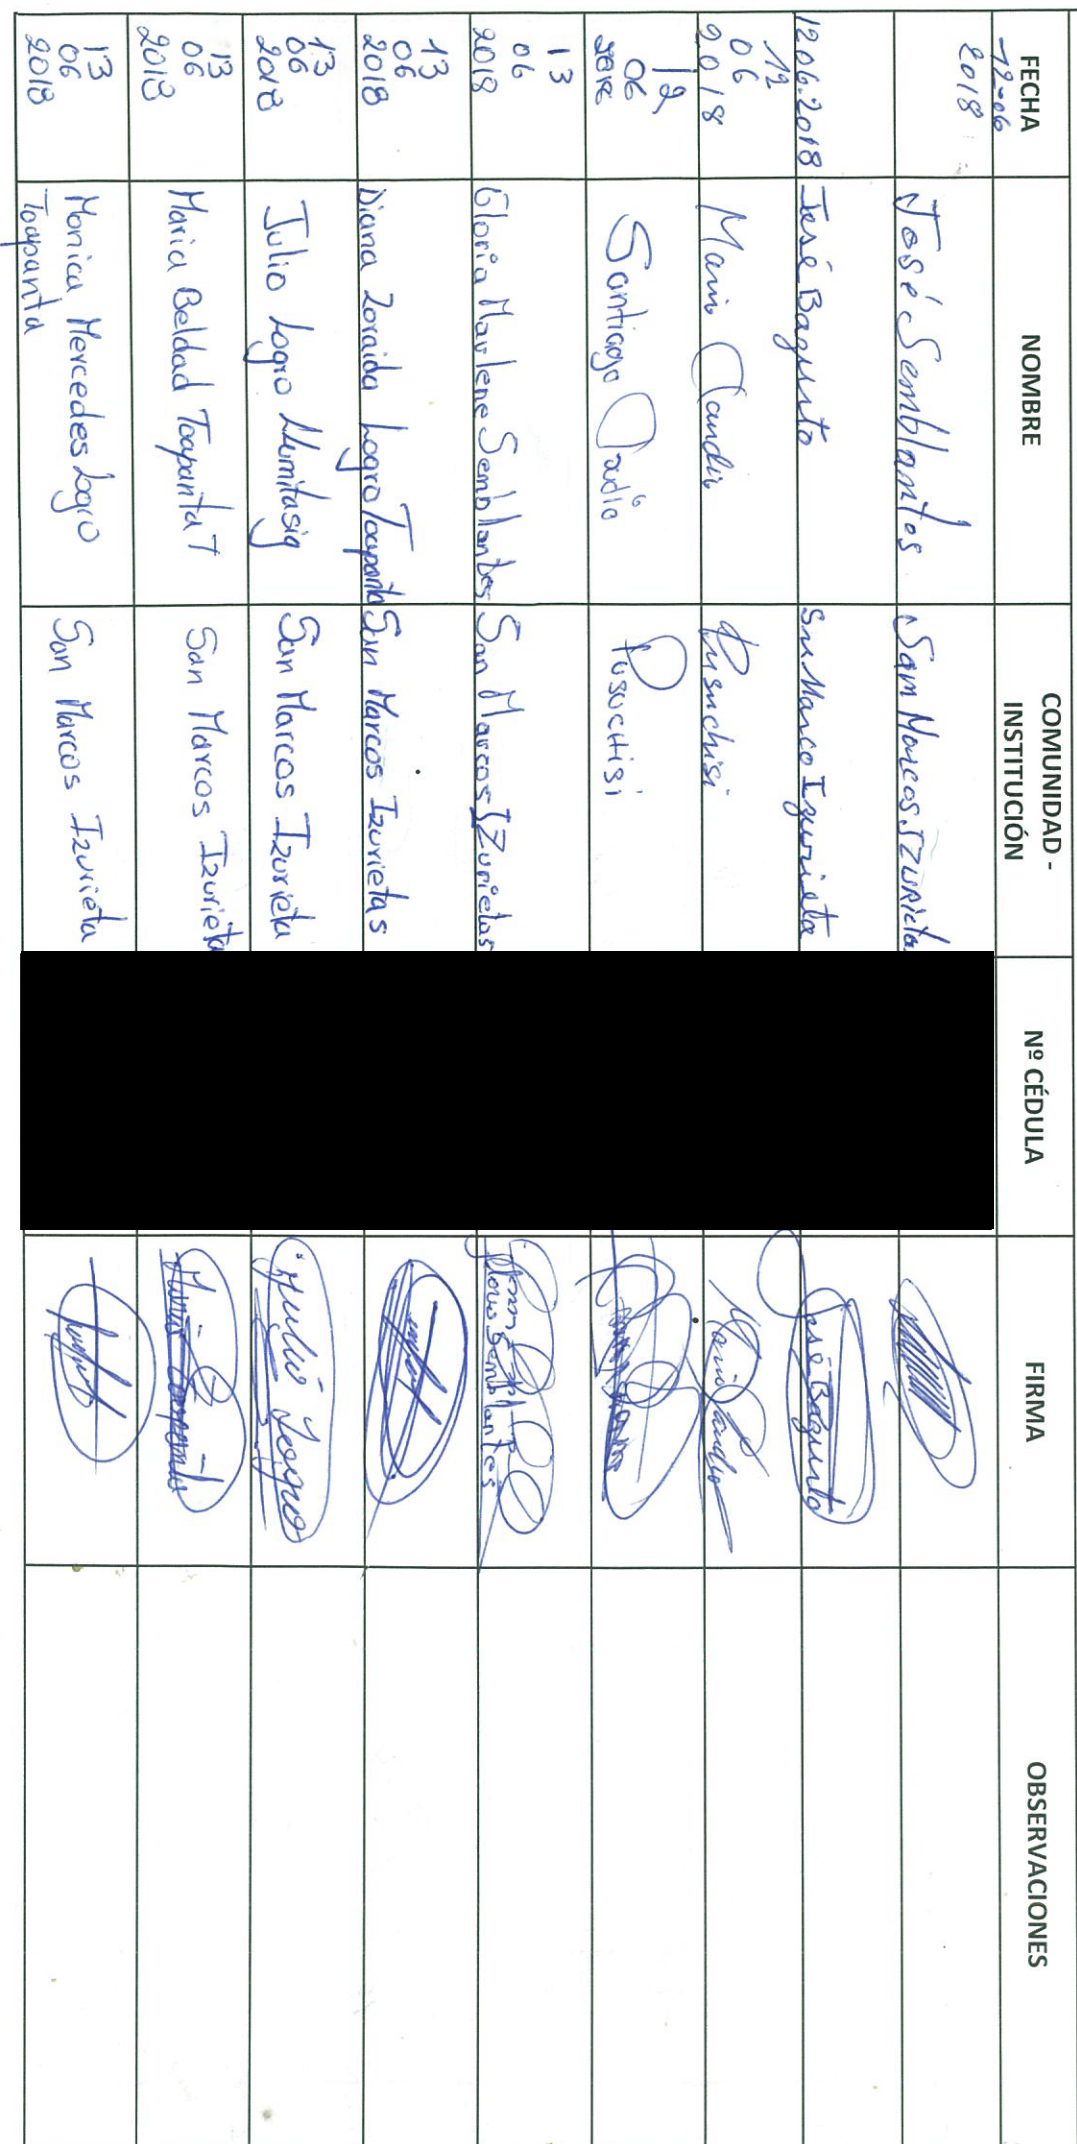 FECHA NOMBRE COMUNIDAD - INSTITUCIÓN Nº CÉDULA FIRMA OBSERVACIONES
12-06 2018 José Semblantes San Marcos Izurieta
12 06 2018 José Bagunto San Marco Izurieta José Bagunto
12 06 2018 Mario Claudio Pusuchisi Mario Claudio
12 06 Santiago Claudio Pusuchisi
13 06 2018 Gloria Marlene Semblantes San Marcos Izurietas Gloria Semblantes
13 06 2018 Diana Zoraida Logro Toapanta San Marcos Izurietas
13 06 2018 Julio Logro Llumitasig San Marcos Izurieta Julio Logro
13 06 2018 Maria Beldad Toapanta T San Marcos Izurieta Maria Toapanta
13 06 2018 Monica Mercedes Logro Toapanta San Marcos Izurieta